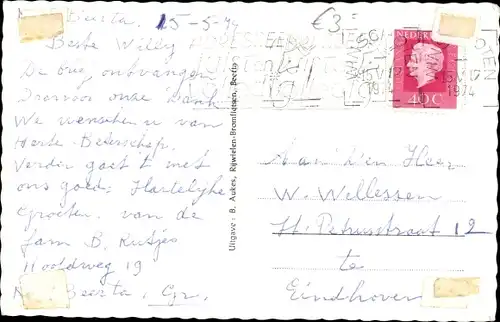 Beerta 15-5-74
Beste Willy
De brief ontvangen
onze dank
We wenschen u van
Herte Beterschap.
Verder gaat t met
ons goed. Hartelijke
Groeten van de
fam B.
Hoofdweg 19
Beerta. Gr.
Uitgave: B. Aukes, Rijwielen-Bromfietsen, Beerta
€3=
NEDERL
40C
15 V 17
1974
15 V 17
1974
Aan den Heer
W. Willessen
St. Petrusstraat 12
te
Eindhoven